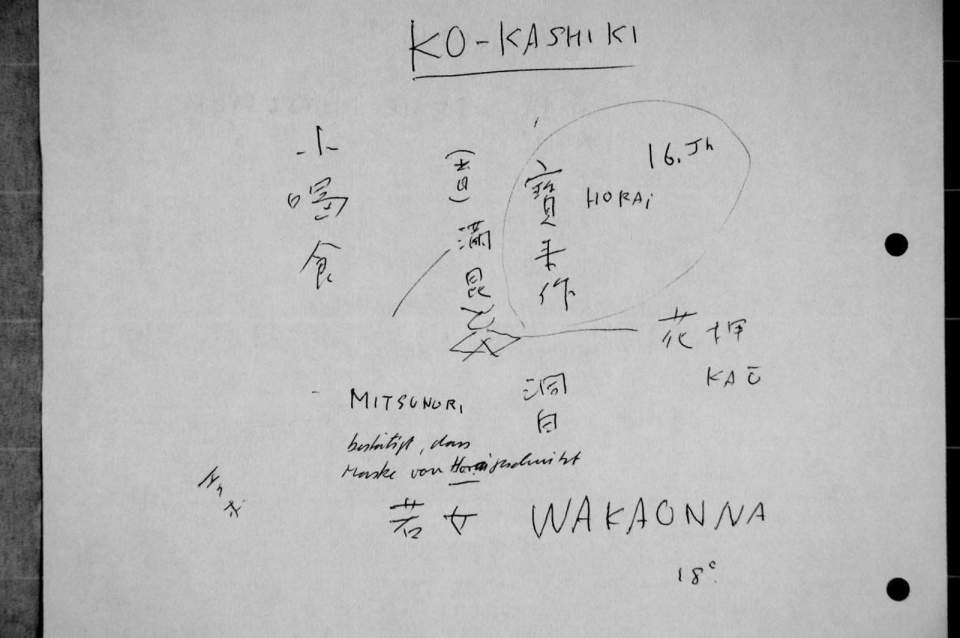 KO-KASHIKI
小喝食
寶来作
HORAI
16. Jh
満昆
花押
KAŌ
MITSUNORI
洞白
bestätigt, dass
Maske von Horai geschnitzt
若女 WAKAONNA
18°